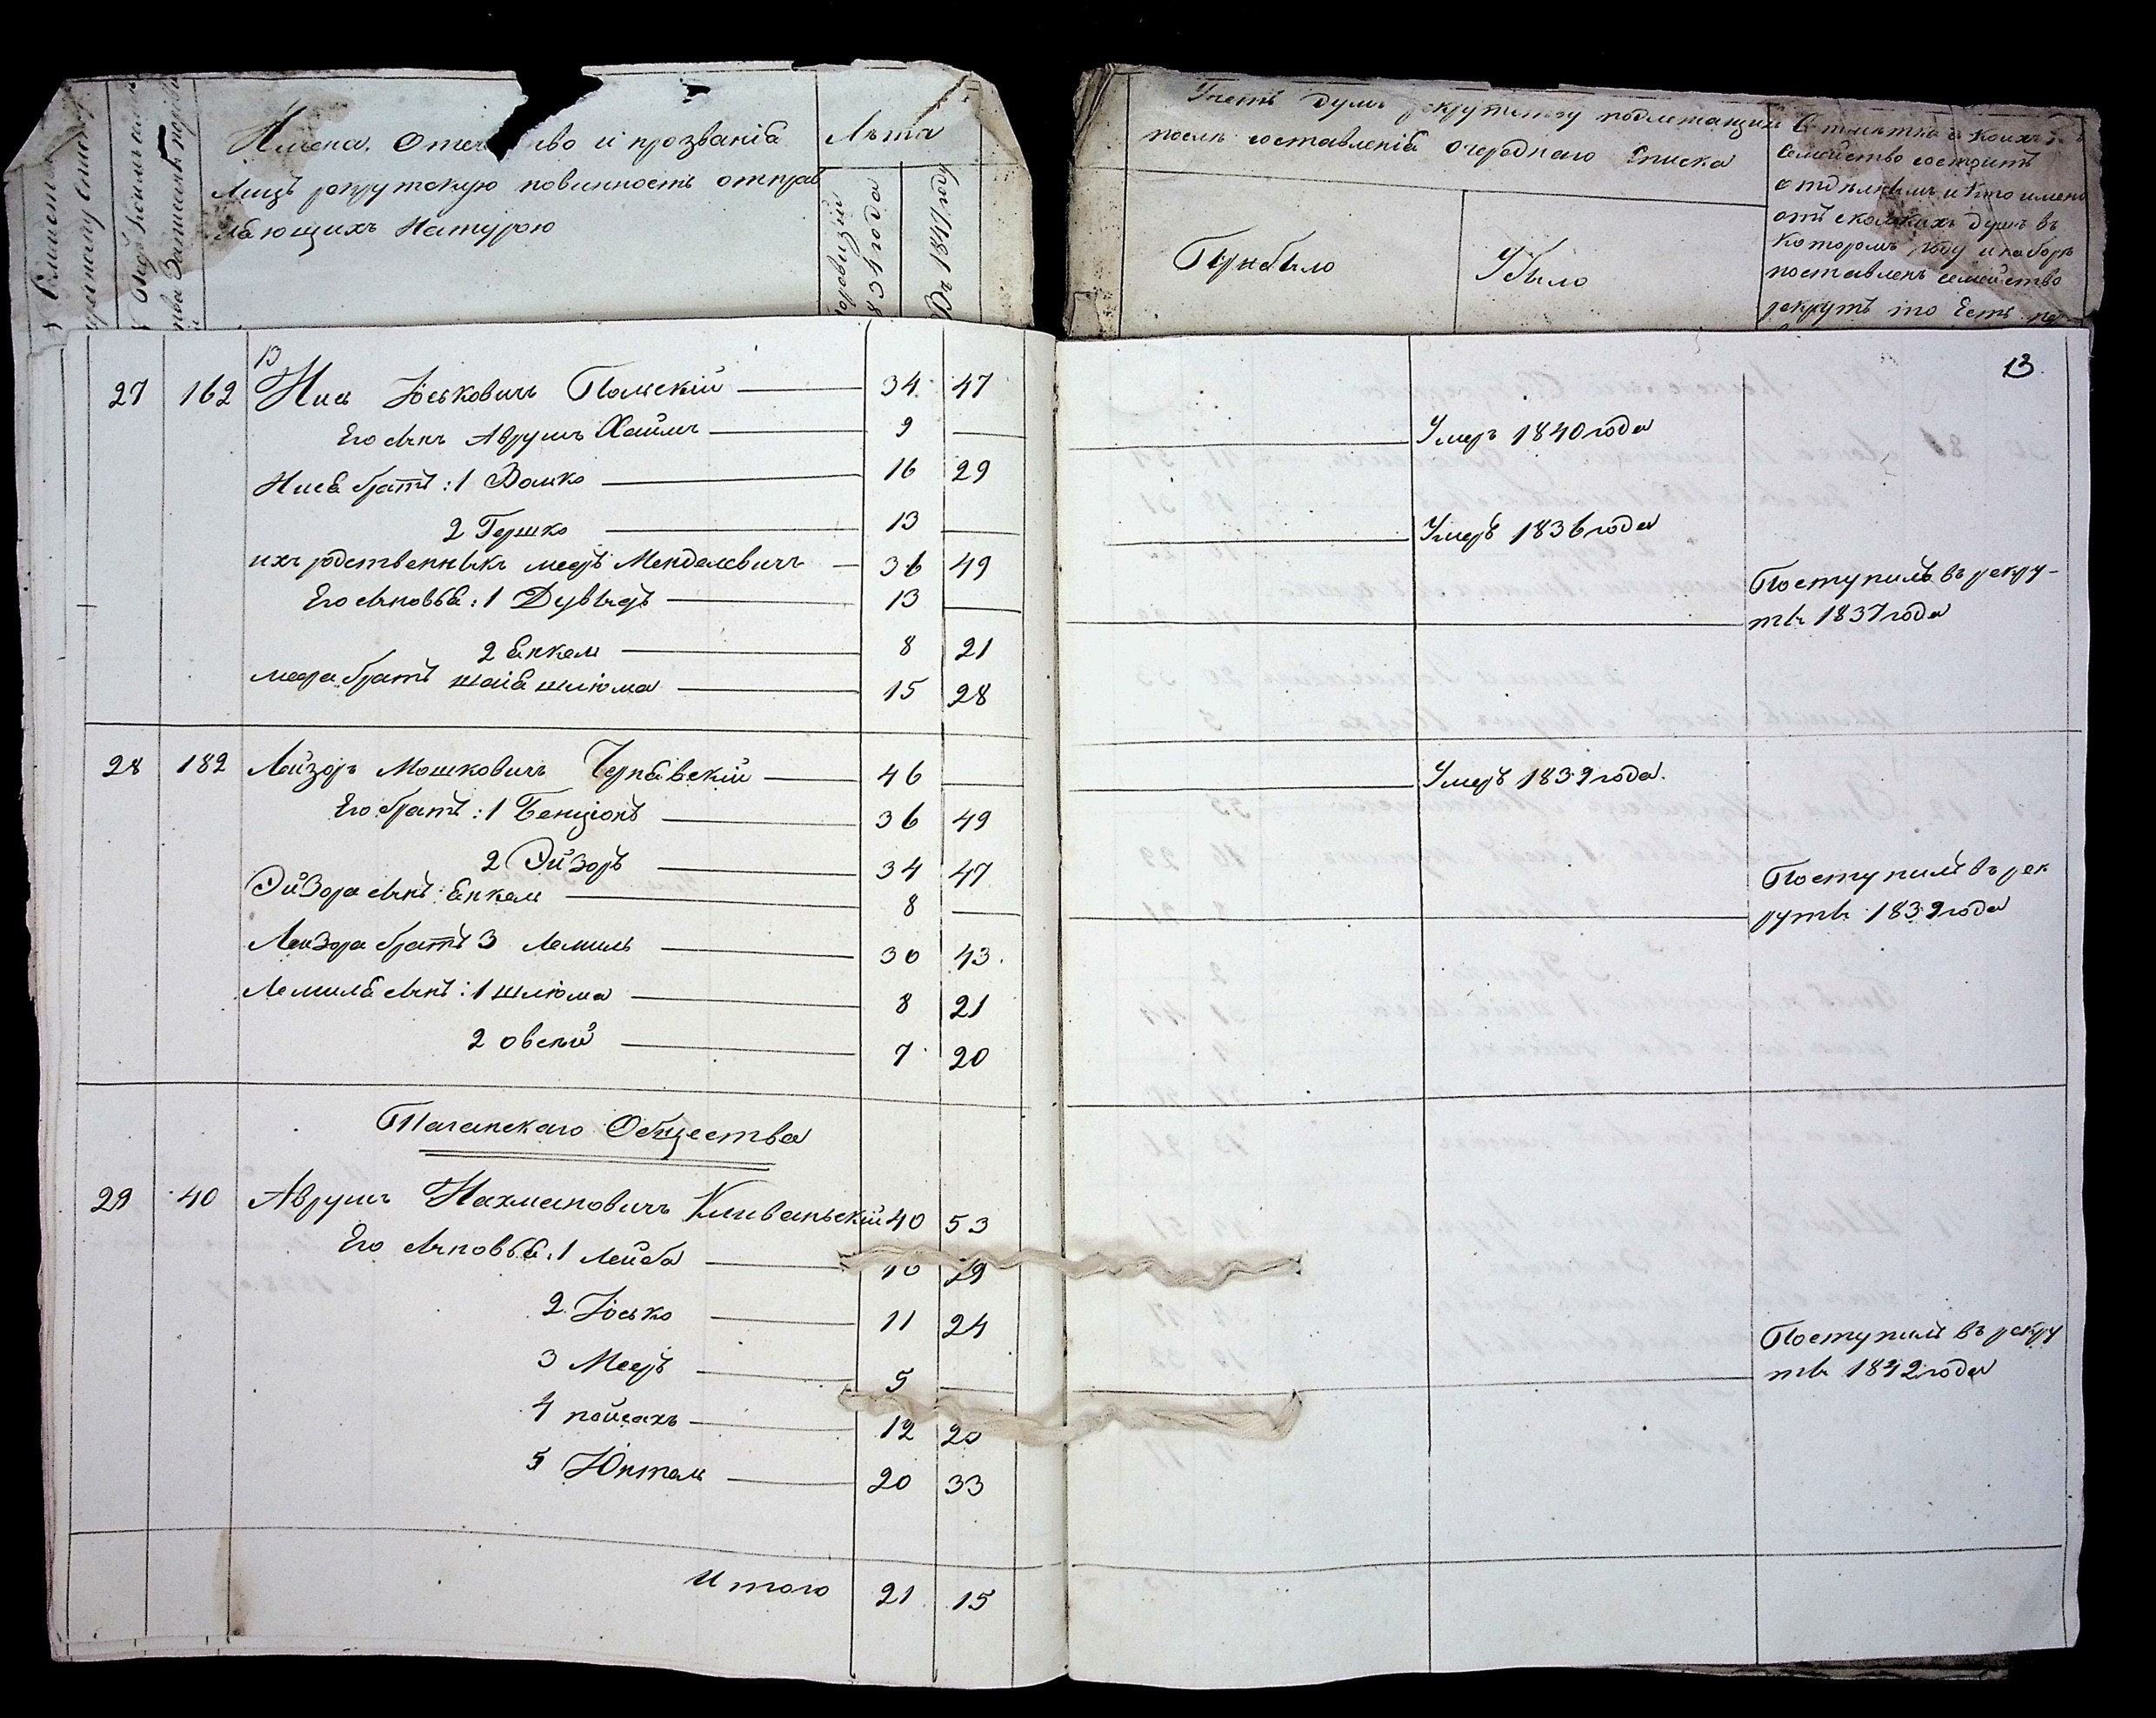 Имена, Отечество и прозванія
Лицъ рекрутскую повинность отправ
ляющихъ Натурою
Лѣта
По ревизіи
834 года
Въ 1847 году
Учетъ душъ рекрутству подлежащихъ
послѣ составленія Очереднаго Списка
Прибыло
Убыло
Отмѣтка о коихъ
Семейство состоитъ
отдѣльнымъ и Кто имено
отъ сколькихъ душъ въ
Которомъ году и наборѣ
поставленъ семейство
рекрутъ то Есть
13
13.
27 162 Нись Іоськовичъ Польскій 34 47
Его сынъ Аврумъ Хаимъ 9 Умеръ 1840 года
Нися братъ: 1 Волько 16 29
2 Гершко 13 Умеръ 1836 года
ихъ родственныкъ мееръ Менделевичъ 36 49
Его сыновья: 1 Дувыдъ 13 Поступилъ въ рекру-
ты 1837 года
2 Янкель 8 21
меера братъ шая шлюма 15 28
28 182 Лейзоръ Мошковичъ Чернявскій 46 Умеръ 1839 года.
Его братъ: 1 Бенціонъ 36 49
2 Эйзоръ 34 47
Эйзора сынъ: Янкель 8 Поступилъ въ рек
руты 1839 года
Лейзора братъ 3 Лемиль 30 43.
Лемиля сынъ: 1 шлюма 8 21
2 овсѣй 7 20
Таганскаго Общества
29 40 Аврумъ Нахмановичъ Клеваньскій 40 53
Его сыновья: 1 Лейба 16 29
2 Іосько 11 24
3 Мееръ 5 Поступилъ въ рекру
ты 1842 года
4 пойсахъ 12 20
5 Юнтель 20 33
Итого 21 15